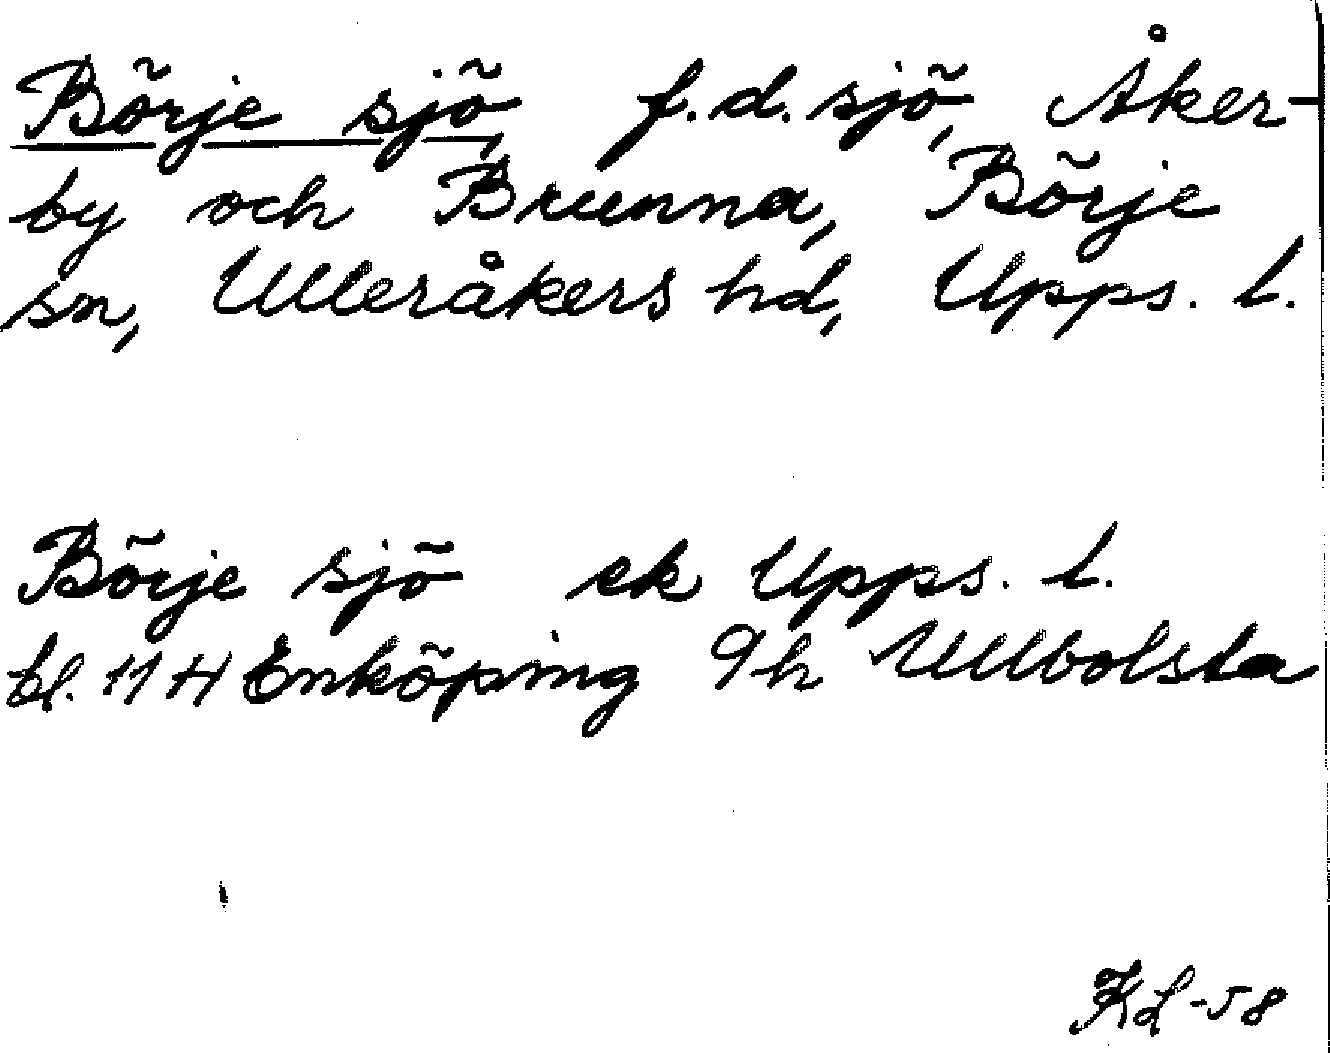 Börje sjö, f.d. sjö, Åker-
by och Brunna, Börje
sn, Ulleråkers hd, Upps. l.
Börje sjö ek Upps. l.
bl. 11 H Enköping 9h Ullbolsta
KL-58